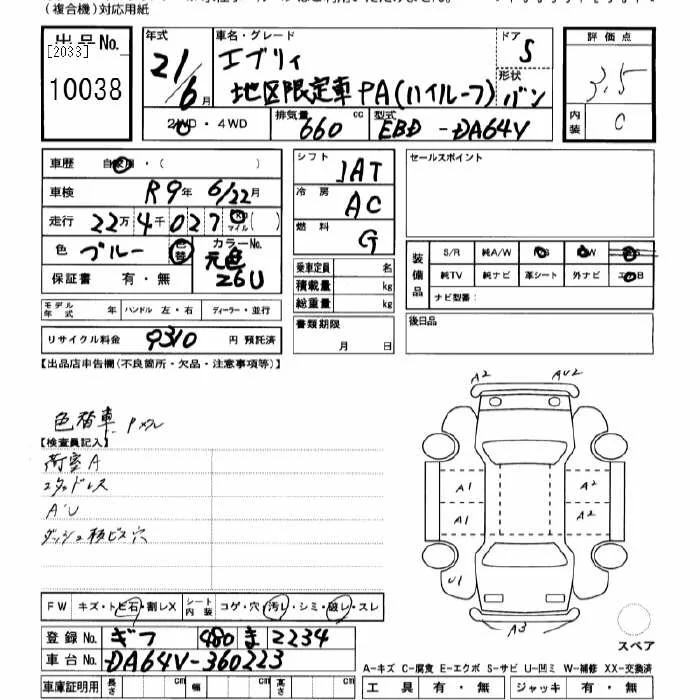 (複合機)対応用紙
出品No. [2033] 10038
年式 21/6月
車名・グレード エブリィ
地区限定車 PA(ハイルーフ)
ドア 5
形状 バン
評価点 3.5
内装 C
2WD・4WD
排気量 660 cc
型式 EBD-DA64V
車歴 自家用・(
車検 R9年 6/22月
走行 22万4千027 km マイル ( )
色 ブルー 色替
カラーNo. 元色 Z6U
保証書 有・無
モデル年式 年 ハンドル 左・右 ディーラー・並行
リサイクル料金 9310 円 預託済
シフト IAT
冷房 AC
燃料 G
乗車定員 名
積載量 kg
総重量 kg
書類期限
月 日
セールスポイント
装備品 S/R 純A/W P/S P/W
純TV 純ナビ 革シート 外ナビ エアB
ナビ型番:
後日品
【出品店申告欄(不良箇所・欠品・注意事項等)】
色替車
【検査員記入】
荷室A
スタッドレス
A'U
ダッシュ板ビス穴
A2 AU2
A1 A2
A1 A2
U1
A3
スペア
FW キズ・トビ石・割レX シート内装 コゲ・穴・汚レ・シミ・破レ・スレ
登録No. ギフ 480 ま 2234
車台No. DA64V-360223
車庫証明用 長さ cm 幅 cm 高さ cm
A-キズ C-腐食 E-エクボ S-サビ U-凹ミ W-補修 XX-交換済
工具 有・無 ジャッキ 有・無